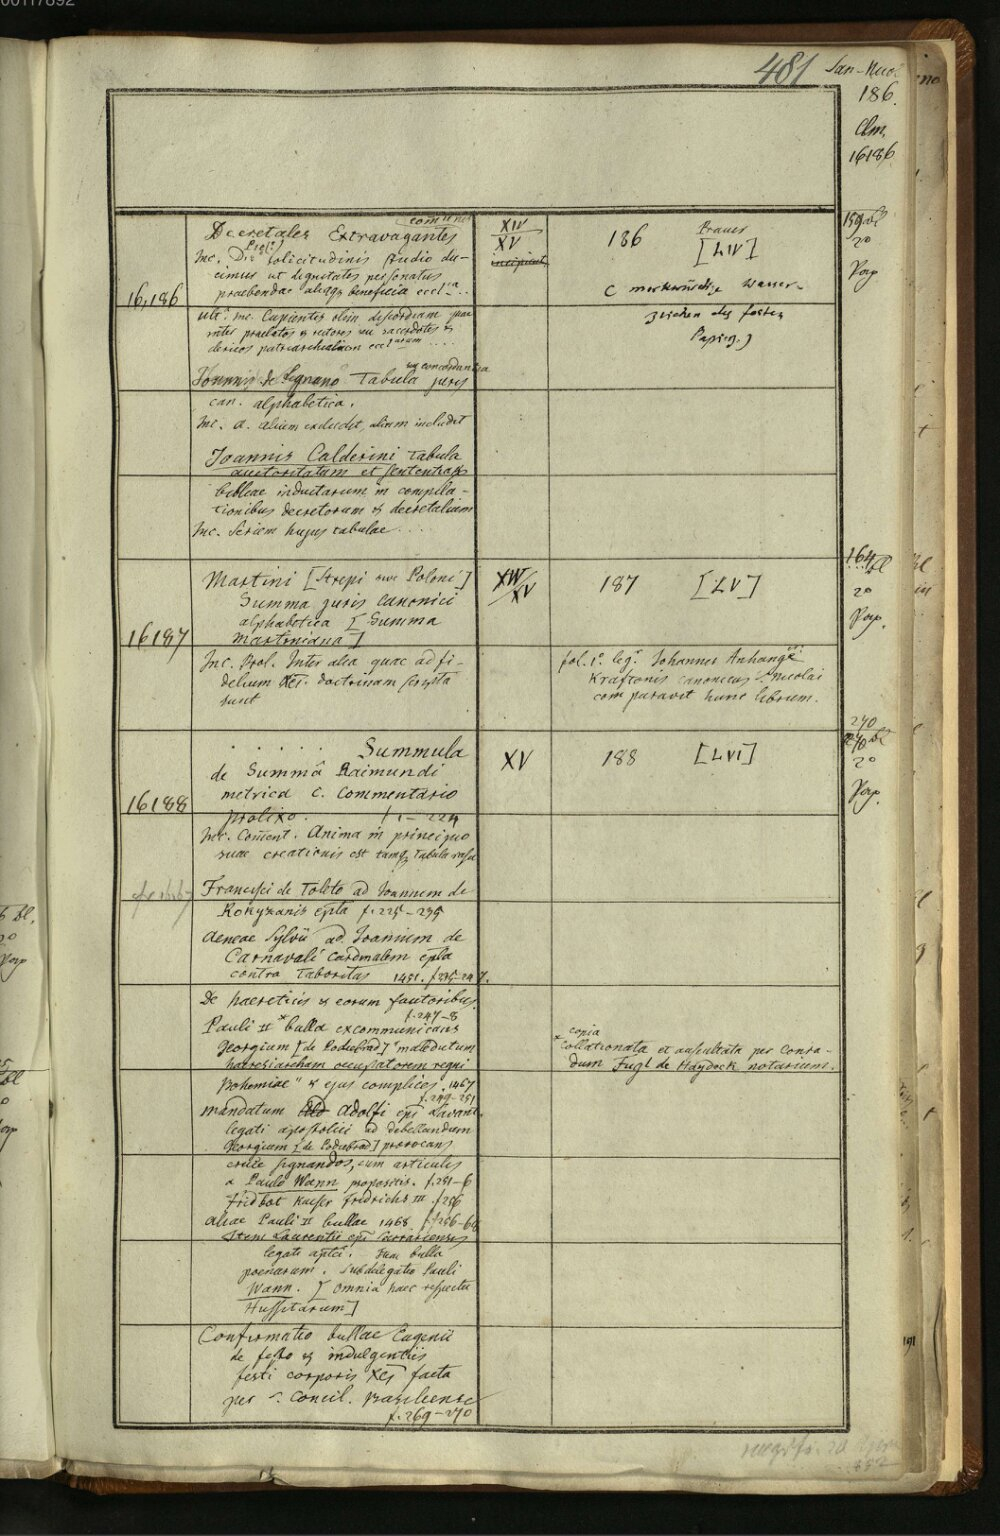 00117892
481
San-Nicol.
186.
Clm.
16186
communes
Decretales Extravagantes
Inc. solicitudinis studio du-
cimur ut dignitates personatus
praebendae aliaqz beneficia eccl
16,186
inter praelatos & rectores seu sacerdotes &
clericos patriarchalium
cu concordantia
Joannis de Legnano Tabula juris
can. alphabetica.
Inc. a. alium excludit, alium includit
Joannis Calderini Tabula
auctoritatum et sententiarum
bibliae inductarum in compila-
tionibus decretorum & decretalium
Inc. Seriem hujus tabulae
XIV
XV
incipient
186
[LIV]
( merkwürdige Wasser-
zeichen des festen
Papiers.)
159 Bl
2°
Pap
16187
Martini [Strepi sive Poloni]
Summa juris canonici
alphabetica [Summa
Martiniana]
Inc. Prol. Inter alia quae ad fi-
delium doctrinam scripta
sunt
XIV/XV
187 [LV]
fol. 1° legr. Johannes Anhang
Kraftonis canonicus S. Nicolai
comparavit hunc librum.
164 Bl
2°
Pap.
16188
. . . . . Summula
de Summâ Raimundi
metrica c. commentario
prolixo. f. 1 - 224
Inc. Coment. Anima in principio
suae creationis est tamqz tabula rasa
XV
188 [LVI]
270
270 Bl
2°
Pap.
Francisci de Toleto ad Joannem de
Rokyzanis epta f. 225-235
Aeneae Sylvii ad Joannem de
Carnavali Cardinalem epla
contra Taboritas 1451. f. 235-247.
De haereticis & eorum fautoribus
f. 247-8
Pauli II * bulla excommunicans
Georgium [de Podiebrad] "maledictum
haeresiarcham occupatorem regni
Bohemiae" & ejus complices. 1467
f. 249-251
copia
* Collationata et auscultata per Conra-
dum Fugl de Haydeck notarium.
mandatum Adolfi epi Lavant.
legati apostolici ad debellandum
Georgium [de Podiebrad] provocans
cruce signandos, cum articulis
a Paulo Wann propositis. f. 251-6
Fridbot Kaeser Fridrichs III f. 256
aliae Pauli II bullae 1468 f. 256-68
Item Laurentii epi Ferrariensis
legati aptci. Tum bulla
poenarum. Subdelegatio Pauli
Wann. [Omnia haec respectu
Hussitarum]
Confirmatio bullae Eugenii
de festo & indulgentiis
festi corporis facta
per S. Concil. Basileense
f. 269-270